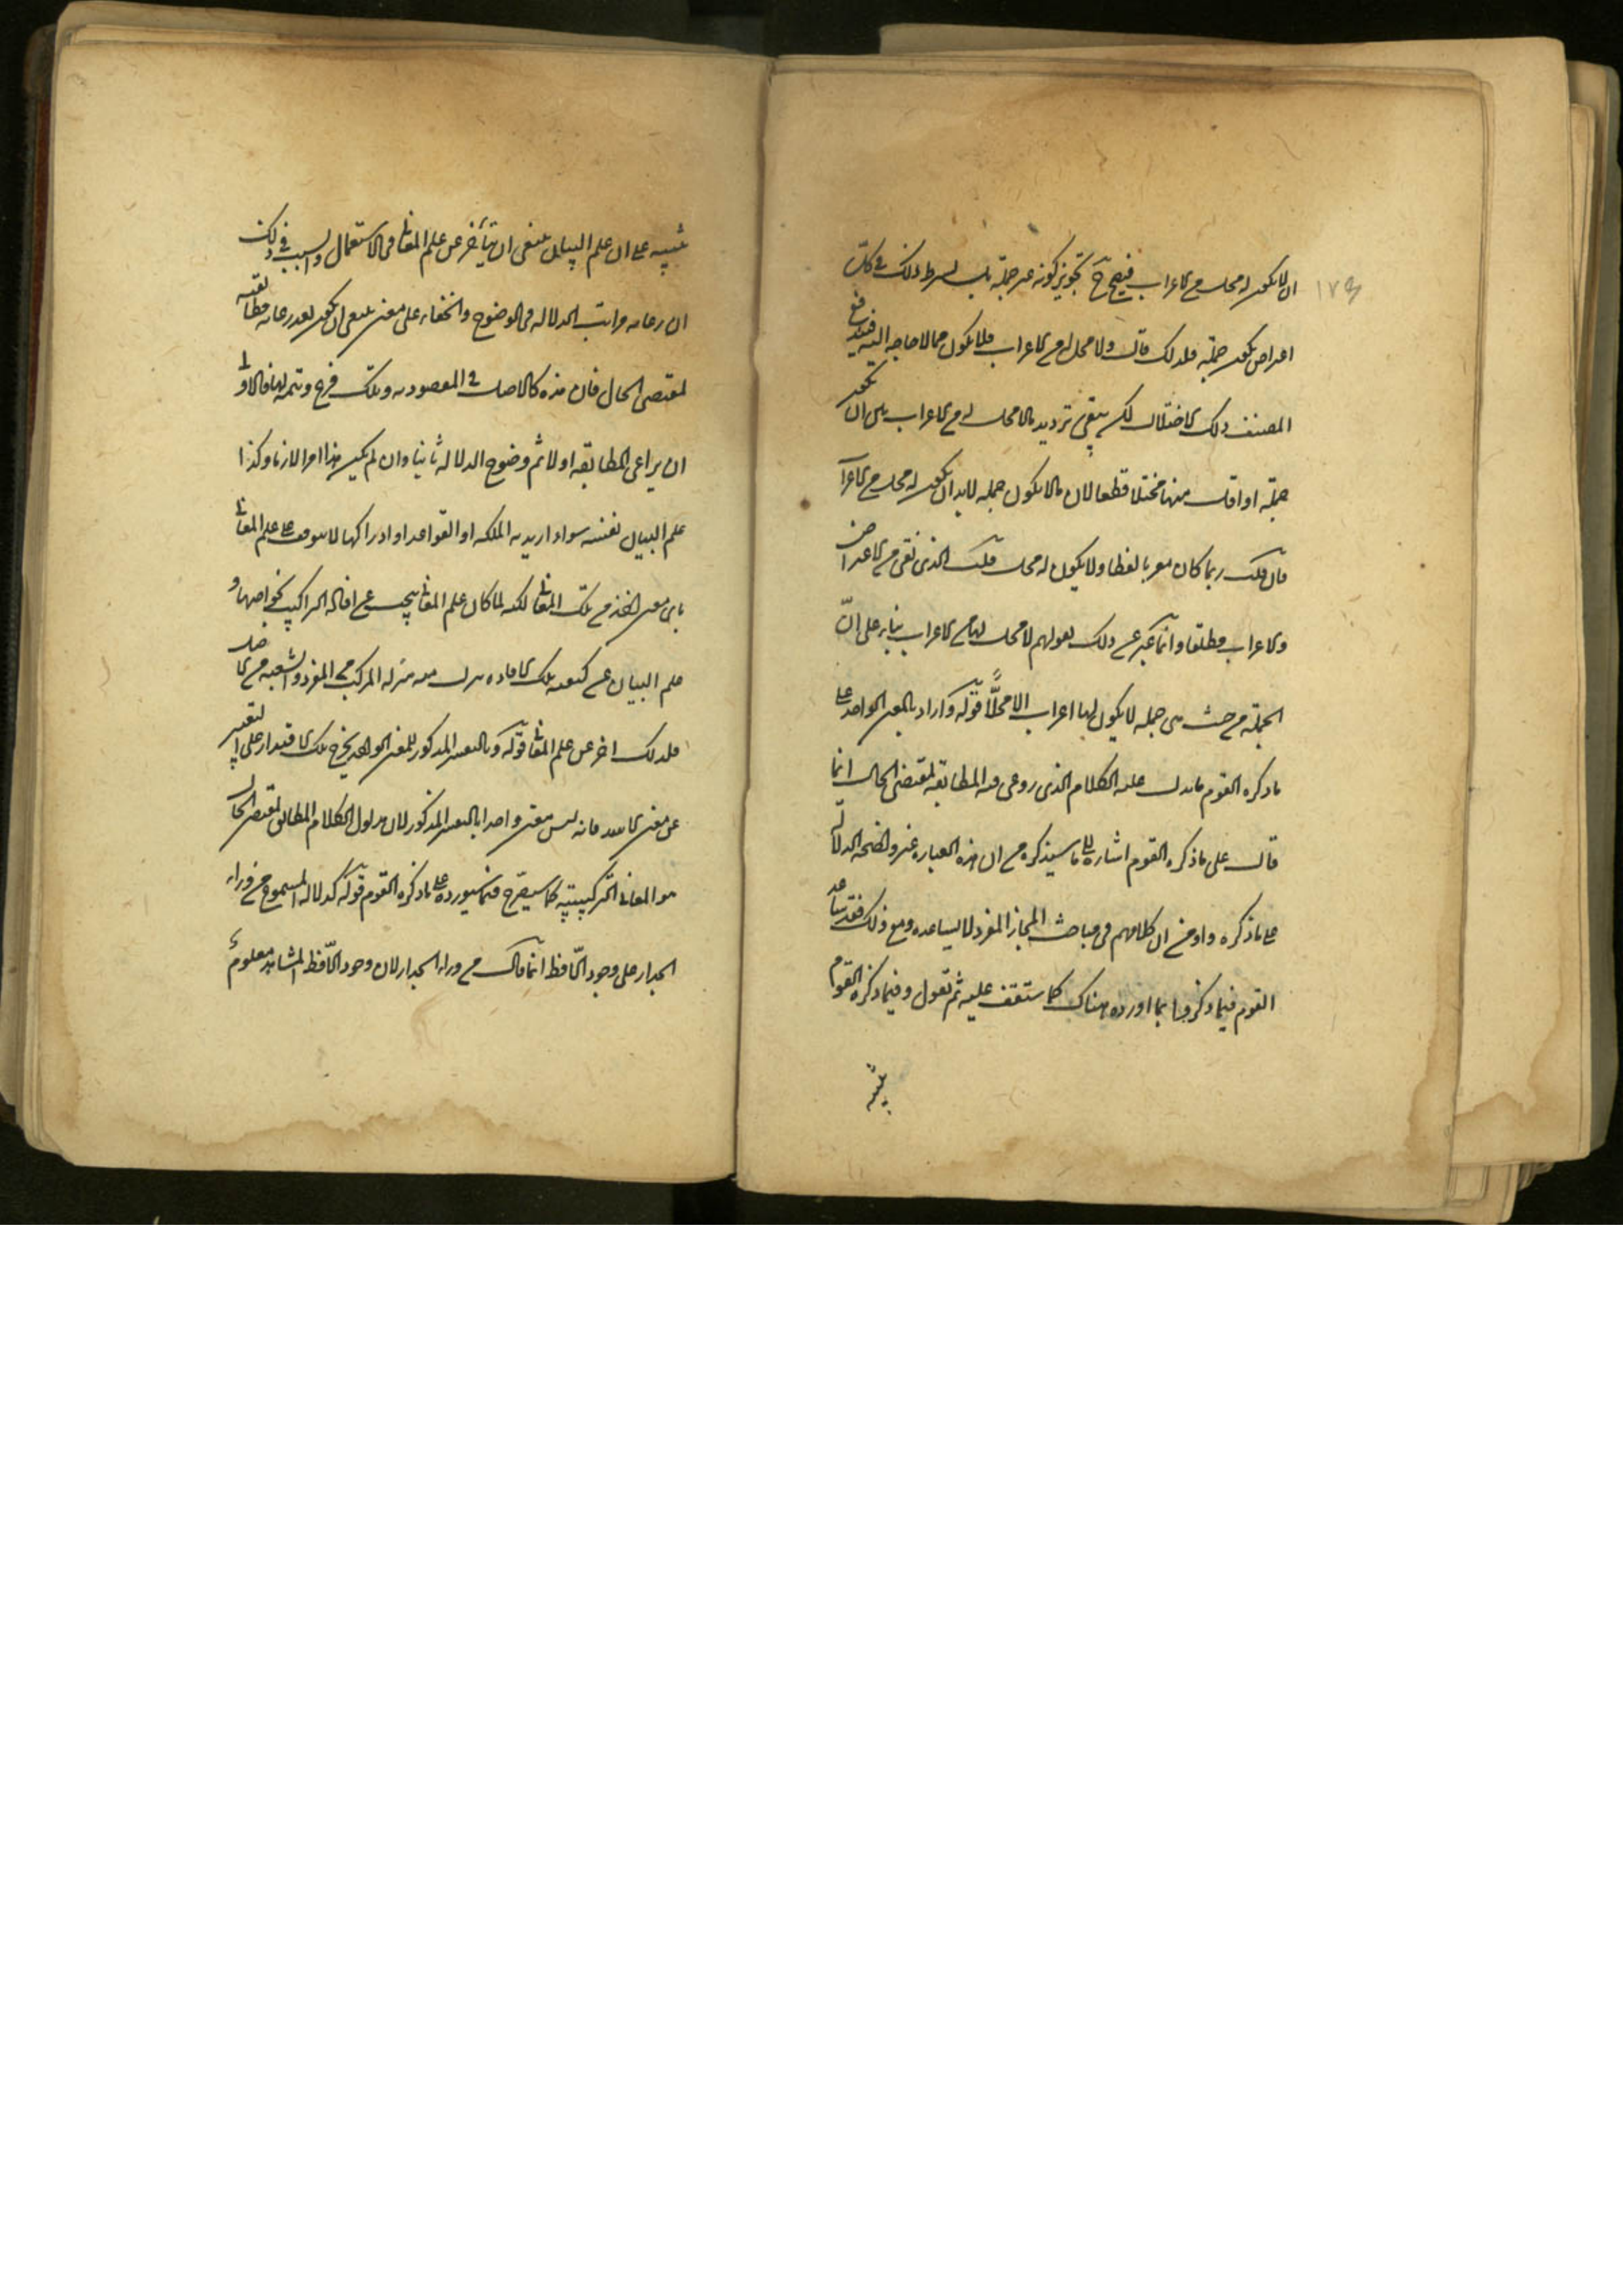 ان لا يكون له محل من الاعراب فيصح ح تجويز كونه غير جملة بل يشترط ذلك في كل
١٧٩
اعتراض يكون جملة فلذلك قال ولا محل له من الاعراب فلا يكون مما لا حاجة اليه فيندفع
المصنف ذلك الاختلال لكن يبقى ترديد ما لا محل له من الاعراب بين ان يكون
جملة او اقل منها مختلا قطعا لان ما لا يكون جملة لا بد ان يكون له محل من الاعرا
فان قلت ربما كان معربا لفظا ولا يكون له محل قلت الذي نفي من الاعتراض
والاعراب مطلقا وانما عبر عن ذلك بقولهم لا محل لها من الاعراب بناء على ان
الجملة من حيث هي جملة لا يكون لها اعراب الا محلا قوله واراد بالمعنى الواحد على
ما ذكره القوم ما يدل عليه الكلام الذي روعي فيه المطابقة لمقتضى الحال انما
قال على ما ذكره القوم اشارة الى ما سيذكره من ان هذه العبارة غير واضحة الدلالة
على ما ذكره واوضح ان كلامهم في مباحث المجاز المفرد لا يساعده ومع ذلك فقد ساعد
القوم فيما ذكروا بما اورده هناك كما ستقف عليه ثم نقول وفيما ذكره القوم
تنبيه
تنبيه على ان علم البيان ينبغي ان يتأخر عن علم المعاني في الاستعمال والسبب في ذلك
ان رعاية مراتب الدلالة في الوضوح والخفاء على معنى ينبغي ان يكون بعد رعاية مطابقته
لمقتضى الحال فان هذه كالاصل في المقصودية وتلك فرع وتتمة لها فالاولى
ان يراعى المطابقة اولا ثم وضوح الدلالة ثانيا وان لم يكن هذا امرا لازما وكذا
علم البيان نفسه سواء اريد به الملكة او القواعد او ادراكها لا يتوقف على علم المعاني
باي معنى اخذ من تلك المعاني لكنه لما كان علم المعاني يبحث عن افادة التراكيب لخواصها و
علم البيان عن كيفية تلك الافادة نزل منه منزلة المركب من المفرد والشعبة من الاصل
فلذلك اخر عن علم المعاني قوله وبالتفسير المذكور للمعنى الواحد يخرج تلك الاقتدار على التعبير
عن معنى الاسد فانه ليس معنى واحدا بالتفسير المذكور لان مدلول الكلام المطابق لمقتضى الحال
هو المعاني التركيبية كما سيصرح فيما سيورده على ما ذكره القوم قوله كدلالة المسموع من وراء
الجدار على وجود اللافظ انما قال من وراء الجدار لان وجود اللافظ المشاهد معلوم